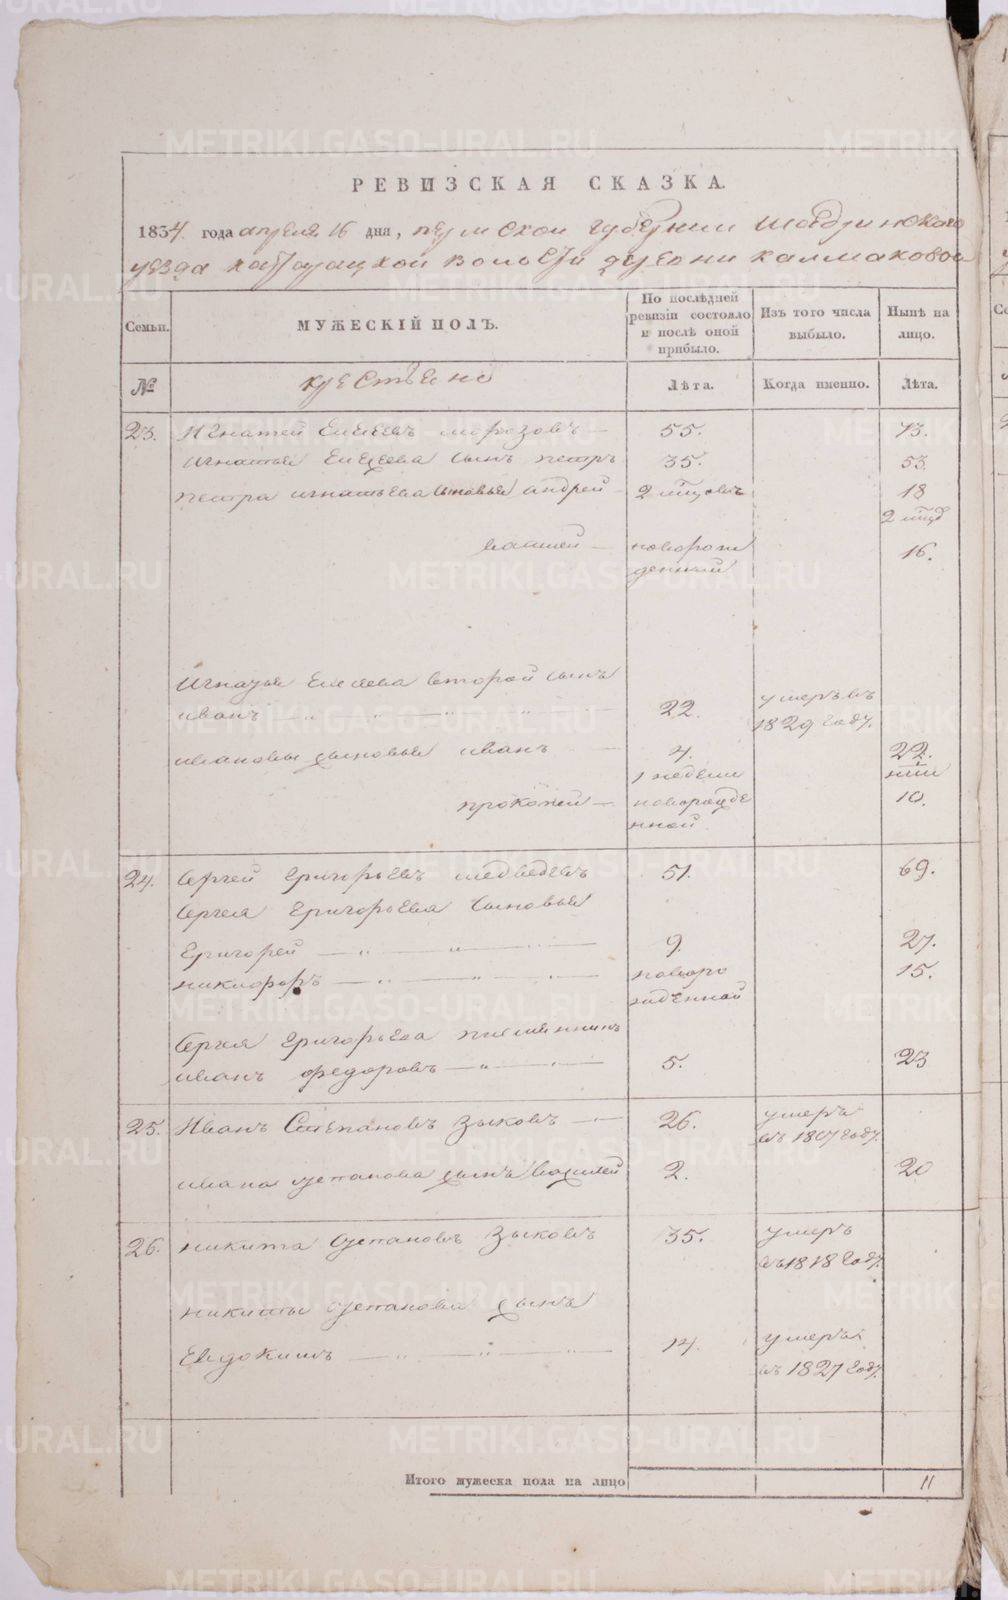 РЕВИЗСКАЯ СКАЗКА.
1834. года апреля 16 дня, пермской губернии Шадринскаго
уезда волости деревни калмаковой
Семьи. МУЖЕСКІЙ ПОЛЪ. По послѣдней ревизіи состояло и послѣ оной прибыло. Изъ того числа выбыло. Нынѣ на лицо.
№ крестьяне Лѣта. Когда именно. Лѣта.
23. Игнатей Елисеевъ морозовъ 55. 73.
игнатья Елисеева сынъ петръ 35. 53
петра игнатьева сыновья андрей 2 мцовъ 18
2 мцов
новорож 16.
денной
Игнатья Елисеева второй сынъ
иванъ 22. умеръ въ
1829 году.
ивановы сыновья иванъ 4. 22.
1 недели
прокопей новорожде 10.
нной
24. Сергей григорьевъ медведевъ 51. 69.
Сергея григорьева сыновья
григорей 9. 27.
никифоръ новоро 15.
жденной
Сергея григорьева племянникъ
иванъ федоровъ 5. 23
25. Иванъ Степановъ зыковъ 26. умеръ
въ 1817 году.
ивана степанова сынъ василей 2. 20
26. никита степановъ зыковъ 35. умеръ
въ 1818 году.
никиты степанова сынъ
Евдокимъ 14. умеръ
въ 1827 году.
Итого мужеска пола на лицо 11
METRIKI.GASO-URAL.RU